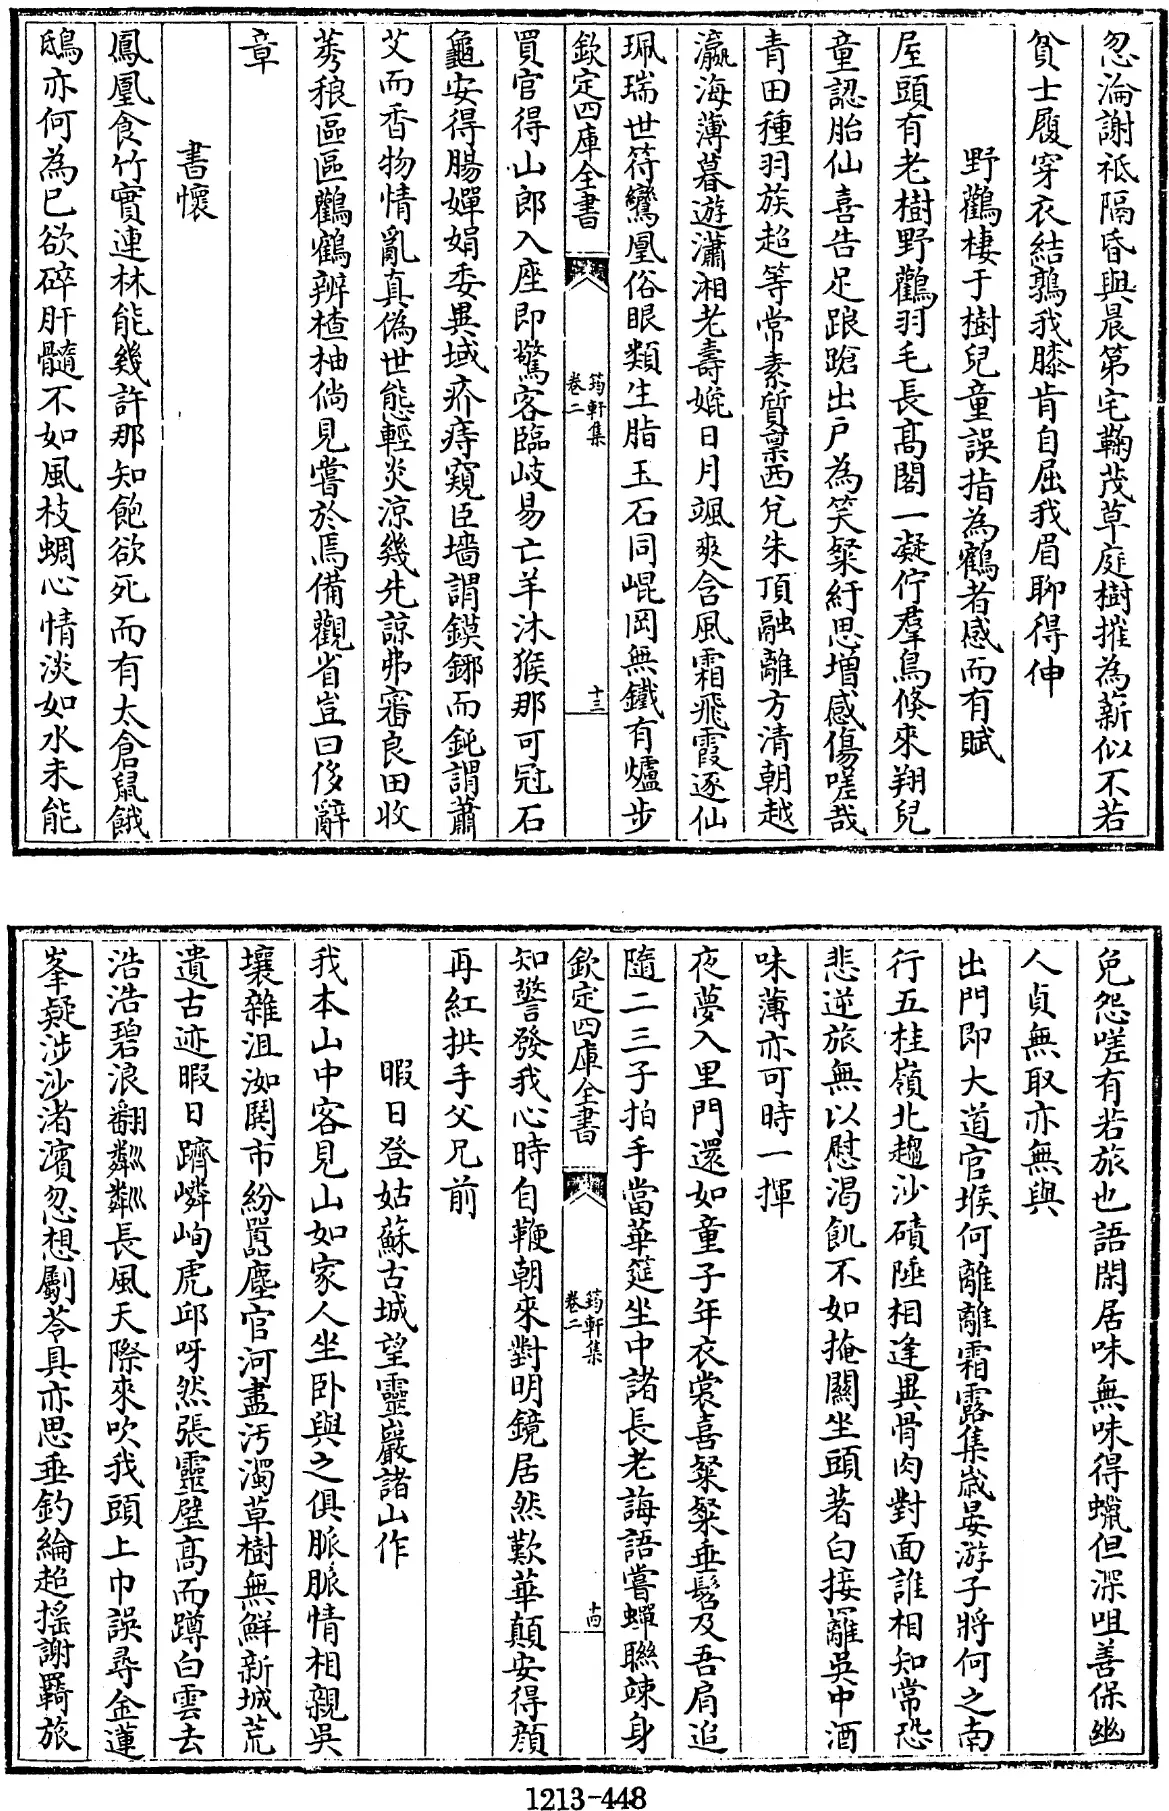 忽淪謝祗隔昏與晨第宅鞠茂草庭樹摧為薪似不若
貧士履穿衣結鶉我膝肯自屈我眉聊得伸
野鸛棲于樹兒童誤指為鶴者感而有賦
屋頭有老樹野鸛羽毛長髙閣一凝佇羣鳥倐來翔兒
童認胎仙喜告足踉蹌出戸為笑粲紆思增感傷嗟哉
青田種羽族超等常素質稟西兌朱頂融離方清朝越
瀛海薄暮遊瀟湘老壽娩日月颯爽含風霜飛霞逐仙
珮瑞世符鸞凰俗眼類生脂玉石同崐岡無鐵有爐步
欽定四庫全書
筠軒集
卷二
十三
買官得山郎入座即驚客臨岐易亡羊沐猴那可冠石
龜安得腸嬋娟委異域疥痔窺臣墻謂鏌鋣而鈍謂蕭
艾而香物情亂真偽世態輕炎涼幾先諒弗審良田收
莠稂區區鸛鶴辨楂柚倘見嘗於焉備觀省豈曰侈辭
章
書懷
鳳凰食竹實連林能幾許那知飽欲死而有太倉鼠餓
鴟亦何為已欲碎肝髓不如風枝蜩心情淡如水未能
免怨嗟有若旅也語閑居味無味得蠟但深咀善保幽
人貞無取亦無與
出門即大道官堠何離離霜露集嵗晏游子將何之南
行五桂嶺北趨沙磧陲相逢異骨肉對面誰相知常恐
悲逆旅無以慰渴飢不如掩關坐頭著白接䍦吳中酒
味薄亦可時一揮
夜夢入里門還如童子年衣裳喜粲粲垂髫及吾肩追
隨二三子拍手當華筵坐中諸長老誨語嘗蟬聯竦身
欽定四庫全書
筠軒集
卷二
十四
知警發我心時自鞭朝來對明鏡居然歎華顛安得顔
再紅拱手父兄前
暇日登姑蘇古城望靈巖諸山作
我本山中客見山如家人坐卧與之俱脈脈情相親吳
壤雜沮洳闤市紛囂塵官河盡汚濁草樹無鮮新城荒
遺古迹暇日躋嶙峋虎邱呀然張靈壁髙而蹲白雲去
浩浩碧浪翻粼粼長風天際來吹我頭上巾誤尋金蓮
峯疑涉沙渚濱忽想劚苓具亦思垂釣綸超揺謝羇旅
1213-448